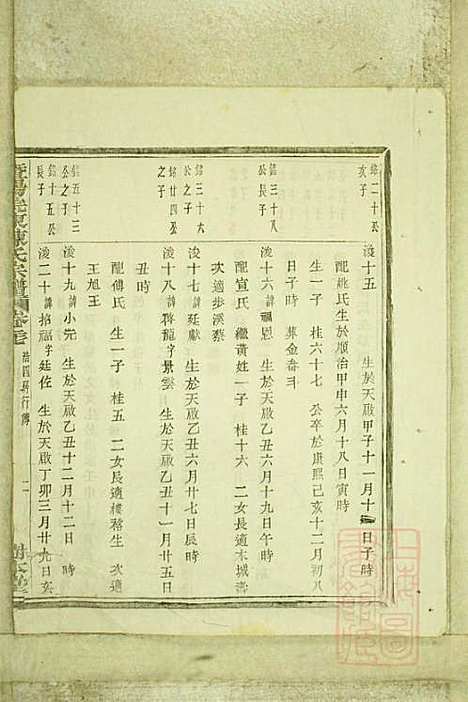 鉻二十公
次子
浚十五 生於天啟甲子十一月十 日子時
配姚氏生於順治甲申六月十八日寅時
生一子 桂六七 公卒於康熙己亥十二月初八
日子時 葬金畚斗
鉻三十八
公長子
浚十六諱鳳恩 生於天啟乙丑六月十九日午時
配宣氏 繼黃姓一子 桂十六 二女長適本城壽
次適步溪蔡
鉻三十六
公之子
浚十七諱廷獻 生於天啟乙丑六月廿七日辰時
鉻廿四公
之子
浚十八諱 龍字景雲 生於天啟乙丑十一月廿五日
丑時
配傅氏 生一子 桂五 二女長適樓 生 次適
王旭王
鉻五十三
公之子
浚十九諱小先 生於天啟乙丑十二月十二日 時
鉻十五公
長子
浚二十諱招福字廷佐 生於天啟丁卯三月廿九日亥
暨陽 東陳氏宗譜 卷
行傳
二